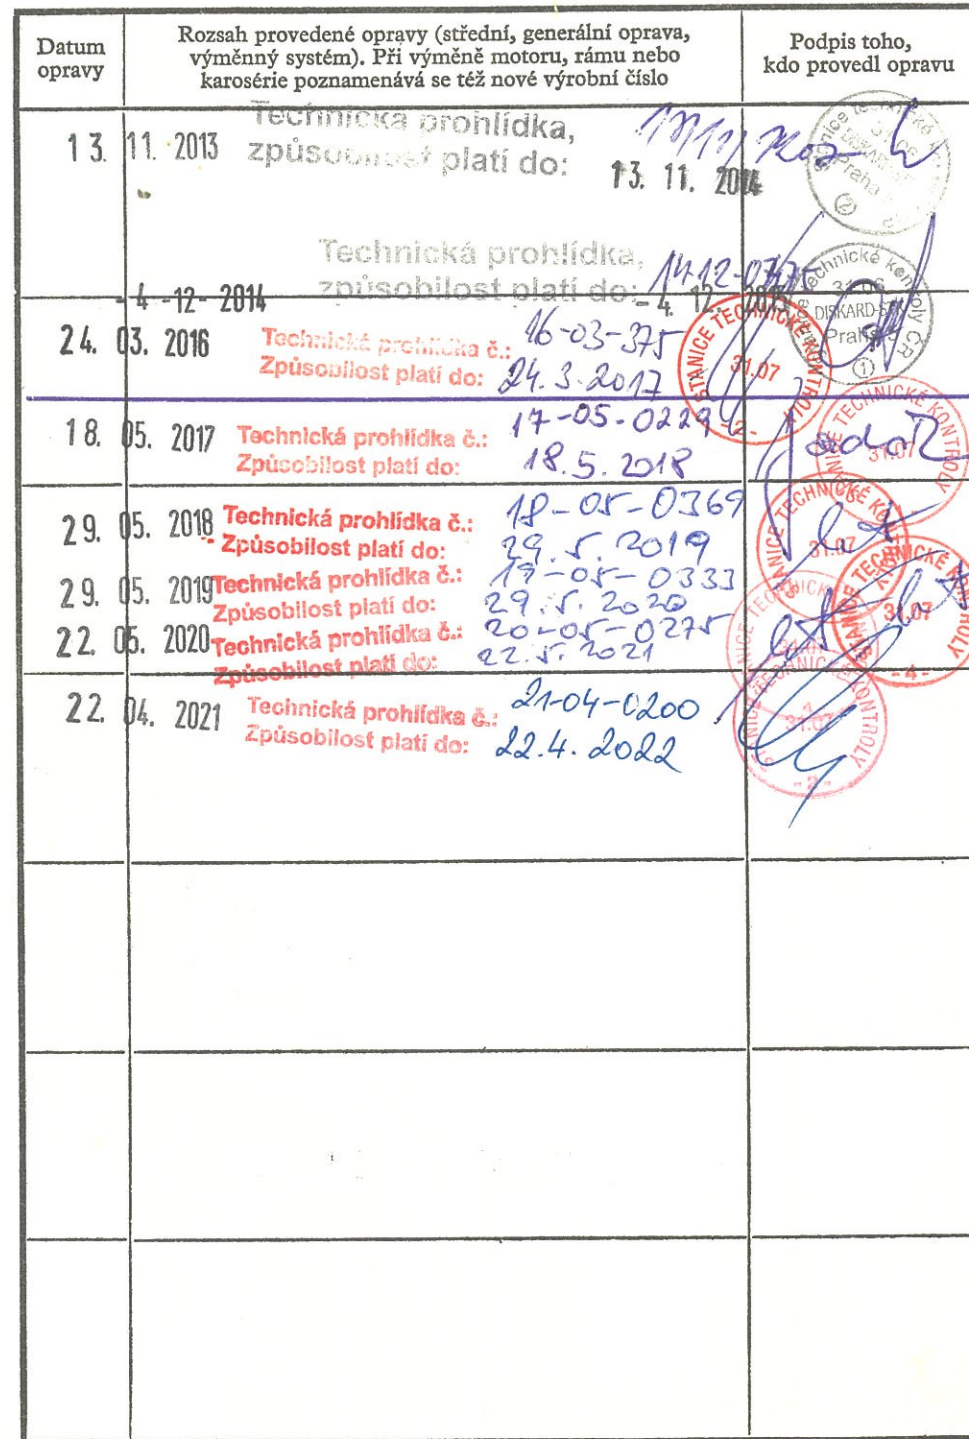 Datum opravy
Rozsah provedené opravy (střední, generální oprava,
výměnný systém). Při výměně motoru, rámu nebo
karosérie poznamenává se též nové výrobní číslo
Podpis toho,
kdo provedl opravu
13. 11. 2013
Technická prohlídka,
způsobilost platí do:
13. 11. 2014
Technická prohlídka,
způsobilost platí do:
14-12-0747
- 4 -12- 2014
- 4. 12. 2015
DISKARD-STK
Praha 5
1
24. 03. 2016
Technická prohlídka č.: 16-03-375
Způsobilost platí do: 24.3.2017
STANICE TECHNICKÉ KONTROLY
31.07
-2-
18. 05. 2017
Technická prohlídka č.: 17-05-0229
Způsobilost platí do: 18.5.2018
STANICE TECHNICKÉ KONTROLY
31.07
29. 05. 2018
Technická prohlídka č.: 18-05-0369
Způsobilost platí do: 29.5.2019
STANICE TECHNICKÉ KONTROLY
31.07
29. 05. 2019
Technická prohlídka č.: 19-05-0333
Způsobilost platí do: 29.5.2020
STANICE TECHNICKÉ KONTROLY
31.07
-4-
22. 05. 2020
Technická prohlídka č.: 20-05-0275
Způsobilost platí do: 22.5.2021
22. 04. 2021
Technická prohlídka č.: 21-04-0200
Způsobilost platí do: 22.4.2022
STANICE TECHNICKÉ KONTROLY
31.07
-2-